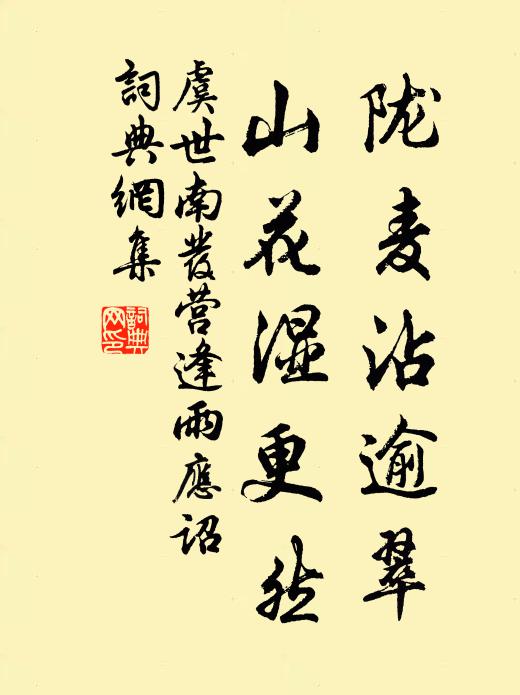 陇麦沾逾翠
山花湿更然
虞世南發营逢雨應詔
詞典網集
詞典网印